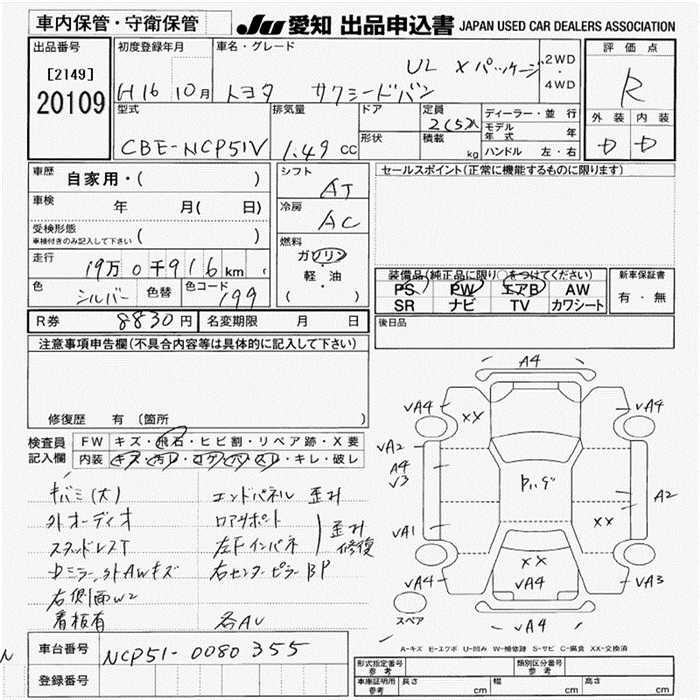 車内保管・守衛保管
JU 愛知 出品申込書 JAPAN USED CAR DEALERS ASSOCIATION
出品番号
[2149]
20109
初度登録年月
H16 10月
車名・グレード
UL Xパッケージ
トヨタ サクシードバン
2WD
・
4WD
評価点
R
外装 内装
D D
型式
CBE-NCP51V
排気量
1.49 cc
ドア
形状
定員
2(5)人
積載
kg
ディーラー・並行
モデル年式 年
ハンドル 左・右
車歴
自家用・( )
車検
年 月( 日)
受検形態
車検付きのみ記入して下さい ( )
走行
19万0千916km (
色
シルバー
色替
色コード
199
シフト
AT
冷房
AC
燃料
ガソリン
軽・油
( )
セールスポイント(正常に機能するものに限ります)
装備品(純正品に限り○をつけてください)
PS PW エアB AW
SR ナビ TV カワシート
新車保証書
有・無
後日品
R券 8830円 名変期限 月 日
注意事項申告欄(不具合内容等は具体的に記入して下さい)
修復歴 有(箇所 )
検査員記入欄
FW キズ・飛石・ヒビ割・リペア跡・X要
内装 キズ・汚レ・コゲ・穴・スレ・キレ・破レ
キバミ(大)
外オーディオ
スタッドレスT
Dミラー、外AWキズ
右側面W2
看板有
エンドパネル 歪み
ロアサポート
左Fインパネ
歪み修復
右センターピラーBP
各AU
A4
VA4 XX VA4
VA2
A4
V3
A2
VA1 XX
XX
VA4 VA4 VA3
VA4
スペア
A-キズ E-エクボ U-凹み W-補修跡 S-サビ C-腐食 XX-交換済
車台番号 NCP51-0080355
登録番号
形式指定番号 参考
類別区分番号 参考
車庫証明用 参考 長さ cm 幅 cm 高さ cm